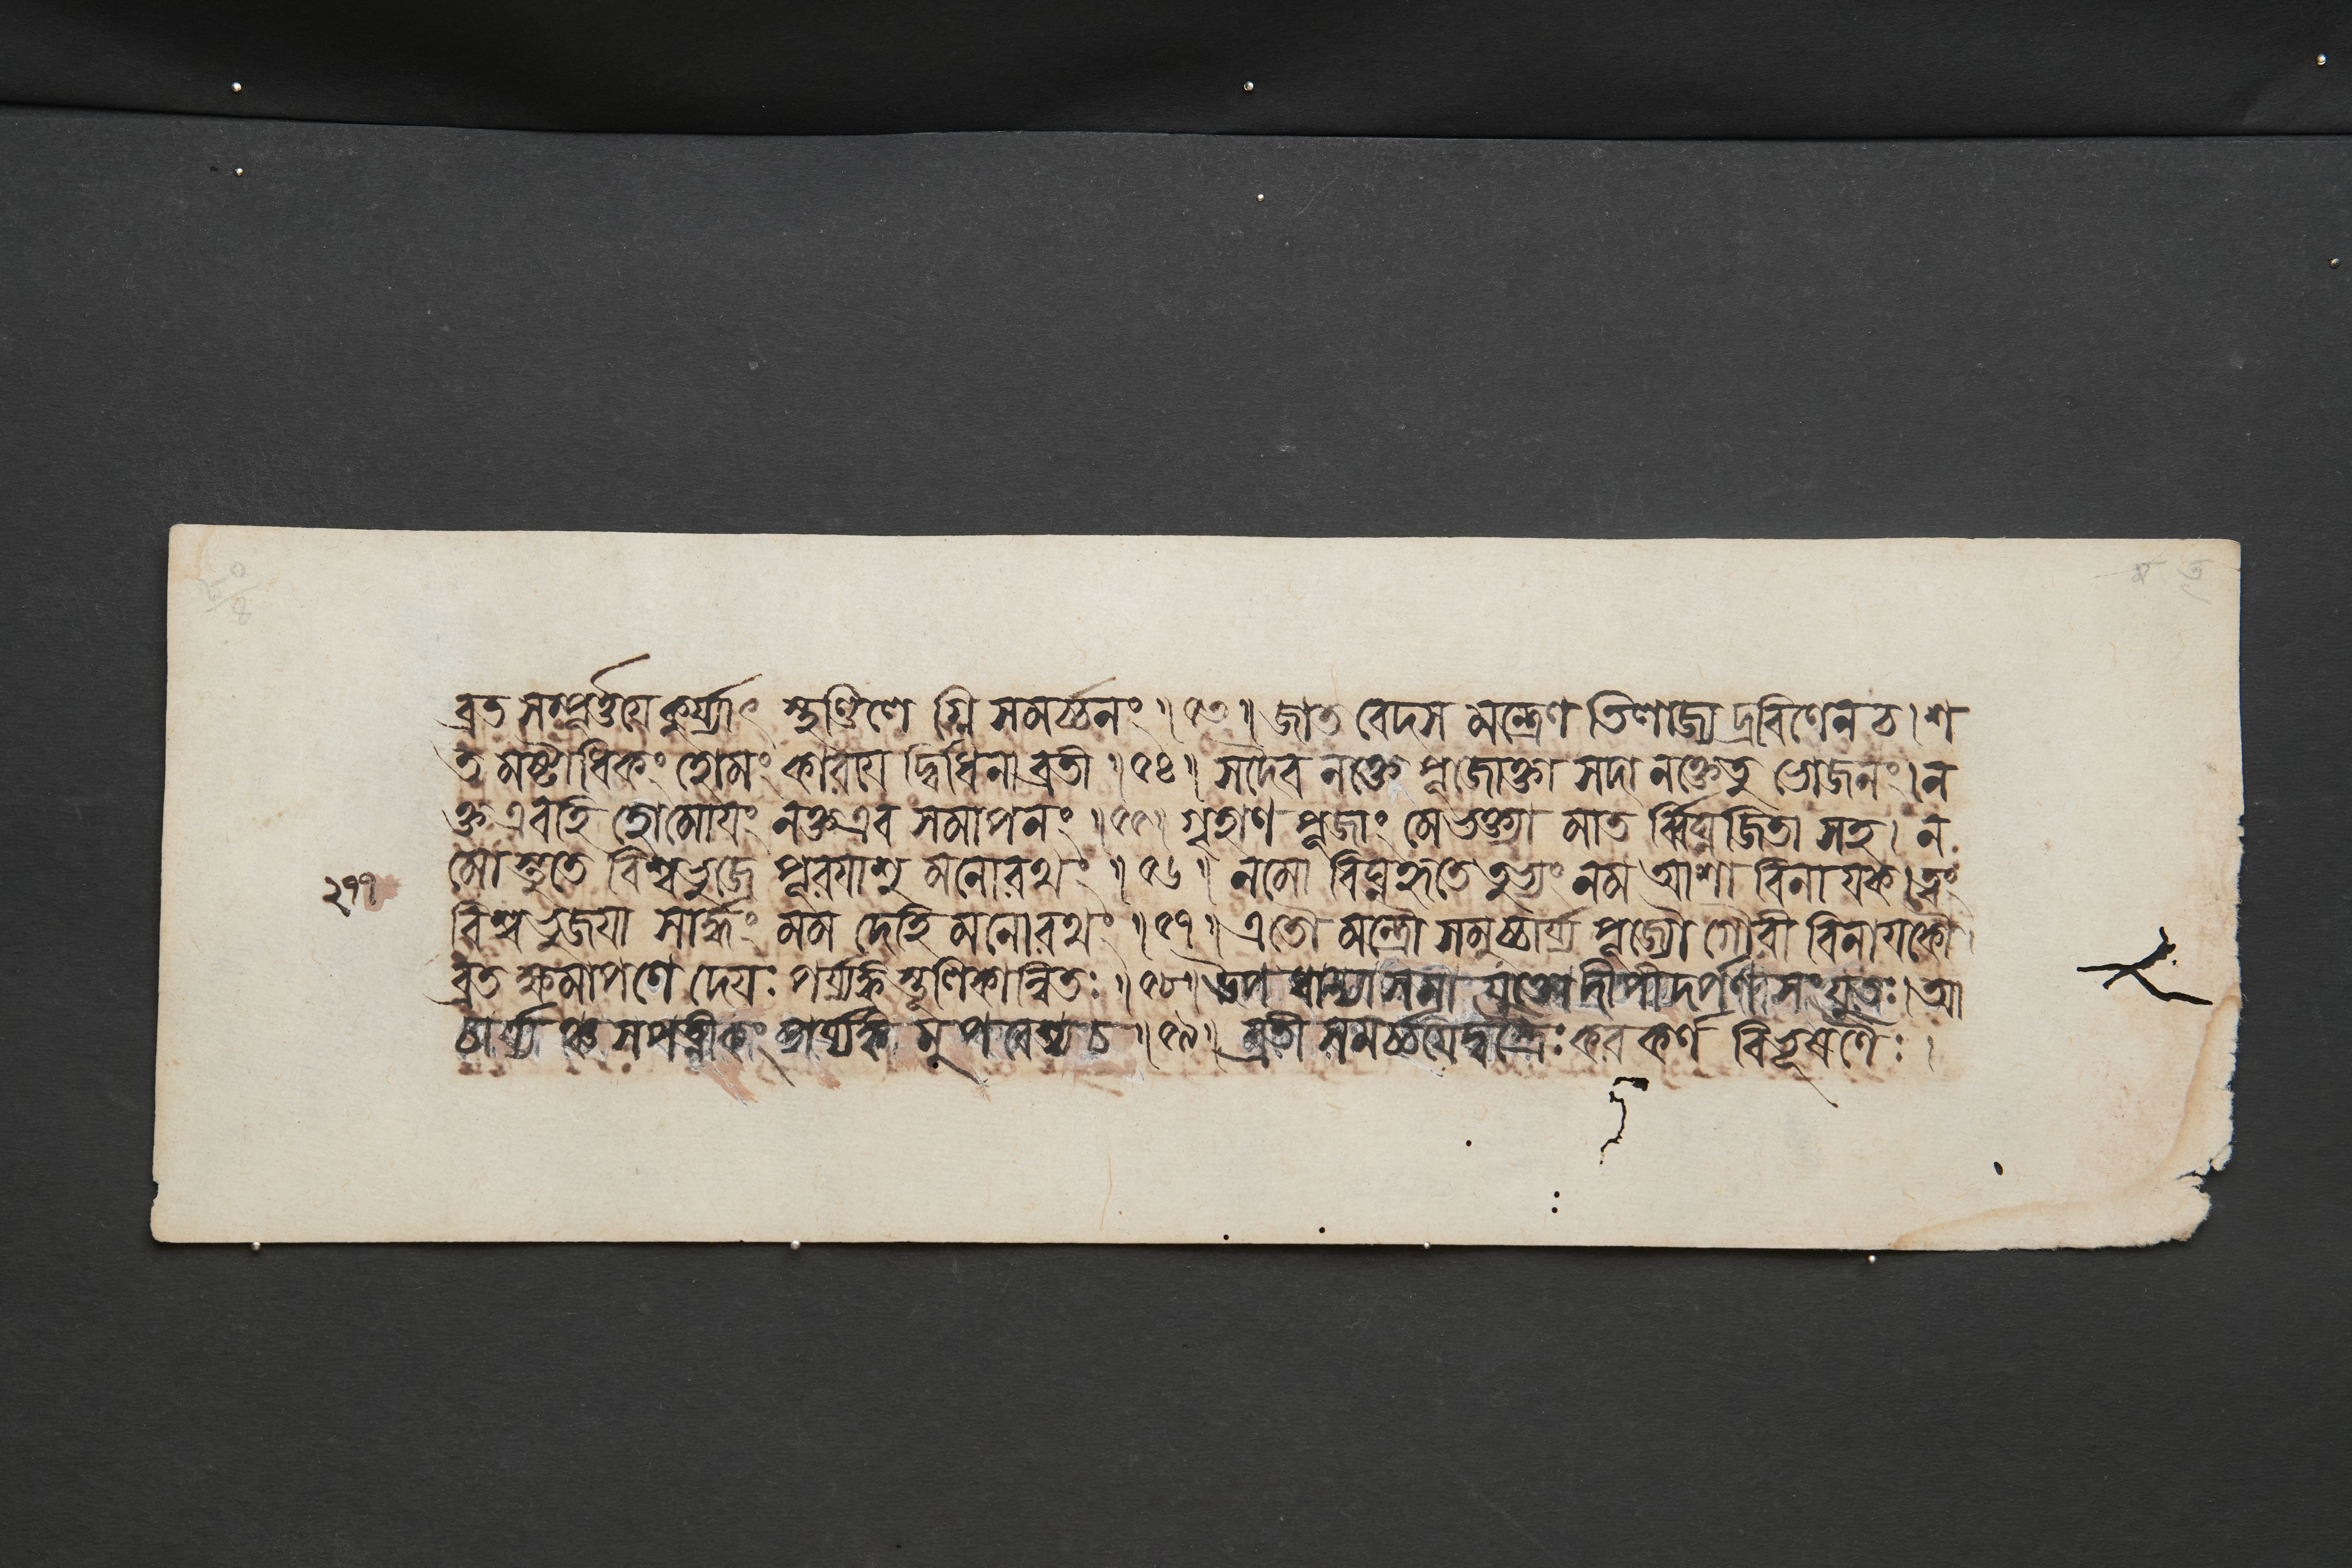 ব্রত সম্পূর্ত্তয়ে কুর্য্যাৎ স্থণ্ডিলে গ্নি সমর্চ্চনং ॥ ৫৩ ॥ জাত বেদস মন্ত্রেণ তিলাজ্য দ্রবিণেন চ । শ
ত মষ্টাধিকং হোমং কারয়ে দ্বিধিনা ব্রতী ॥ ৫৪ ॥ সদৈব নক্তে পূজোক্তা সদা নক্তেতু ভোজনং । ন
ক্ত এবহি হোমোয়ং নক্ত এব সমাপনং ॥ ৫৫ ॥ গৃহাণ পূজাং মে ভক্ত্যা মাত র্ব্বিঘ্নজিতা সহ । ন
মো স্তুতে বিশ্বভুজে পূরয়াশু মনোরথং ॥ ৫৬ ॥ নমো বিঘ্নকৃতে তুভ্যং নম আশা বিনায়ক । ত্বং
২৭৭
বিশ্বভুজয়া সার্দ্ধং মম দেহি মনোরথং ॥ ৫৭ ॥ এতৌ মন্ত্রৌ সমুচ্চার্য্য পূজ্যৌ গৌরী বিনায়কৌ ।
ব্রত ক্ষমাপণে দেয়ঃ পর্য্যঙ্ক স্তূলিকান্বিতঃ ॥ ৫৮ ॥ উপ ধান্যা সমা যুক্তো দীপীদর্পণ সংযুতঃ । আ
চার্য্য ঞ্চ সপত্নীকং পর্য্যঙ্ক মুপবেশ্য চ ॥ ৫৯ ॥ ব্রতী সমর্চ্চয়েদ্বস্ত্রৈঃ কর কর্ণ বিভূষণৈঃ ।